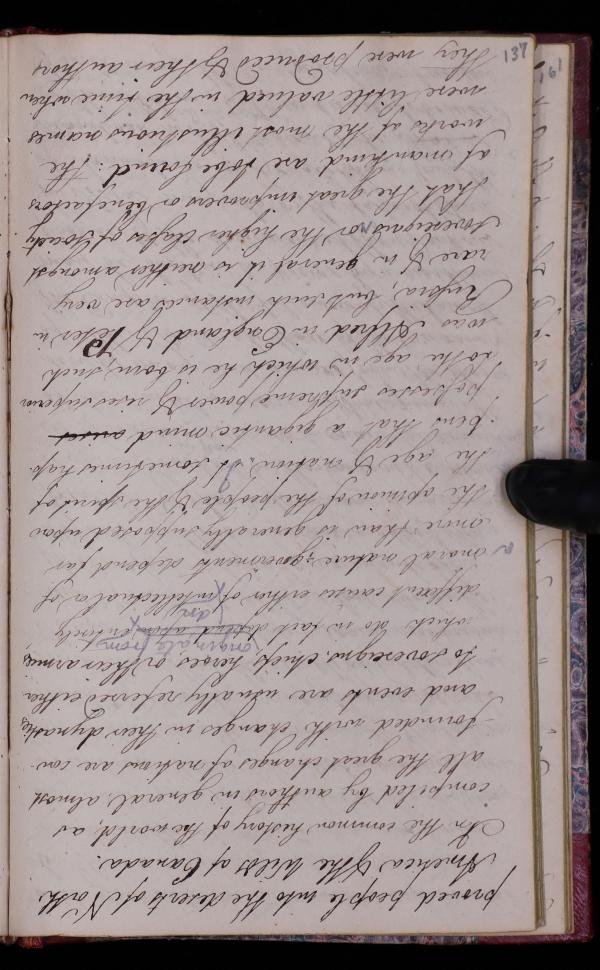 137
161
proved people into the deserts of North
America & the Wilds of Canada.
In the common history of the world, as
compiled by authors in general, almost
all the great changes of nations are con-
founded with changes in their dynasties
and events are usually referred either
to sovereigns, chiefs, heroes or their armies
originate from
which do in fact depend upon entirely
an
different causes either of intellectual or
moral nature; governments depend far
more than is generally supposed upon
the opinion of the people & the spirit of
the age & nation. It sometimes hap-
pens that a gigantic mind
possesses supreme power & rises superior
to the age in which he is born, such
was Alfred in England & Peter in
Russia; but such instances are very
rare & in general it is neither amongst
sovereigns nor the higher classes of society
that the great improvers or benefactors
of mankind are to be found. The
works of the most illustrious names
were little valued in the time when
they were produced & their authors